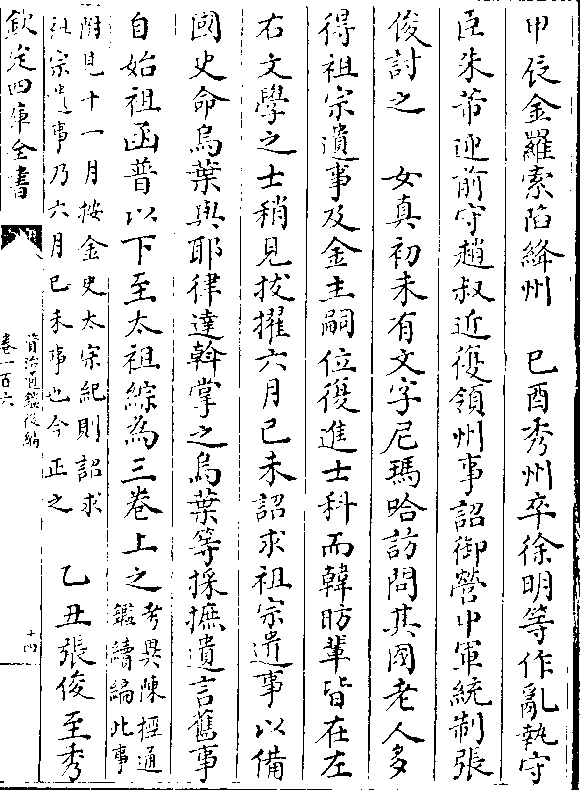 甲辰金羅索陷絳州　己酉秀州卒徐明等作亂執守
臣朱芾迎前守趙叔近復領州事詔御營中軍統制張
俊討之　女真初未有文字尼瑪哈訪問其國老人多
得祖宗遺事及金主嗣位復進士科而韓昉輩皆在左
右文學之士稍見拔擢六月己未詔求祖宗遺事以備
國史命烏葉與耶律達斡掌之烏葉等採摭遺言舊事
自始祖函普以下至太祖綜為三卷上之考異陳桱通
鑑續編此事
附見十一月按金史太宗紀則詔求
祖宗遺事乃六月己未事也今正之　乙丑張俊至秀
欽定四庫全書
資治通鑑後編
卷一百六
十四